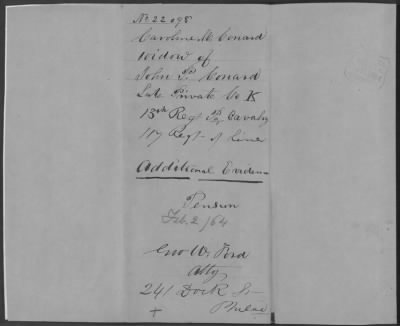 No 22098
Caroline M. Conard
widow of
John P. Conard
Late Private Co K
13th Regt Pa Cavalry
117 Regt of Line
Additional Evidence
Pension
Feb. 2/64
Geo W. Ford
Atty
241 Dock St
Phila